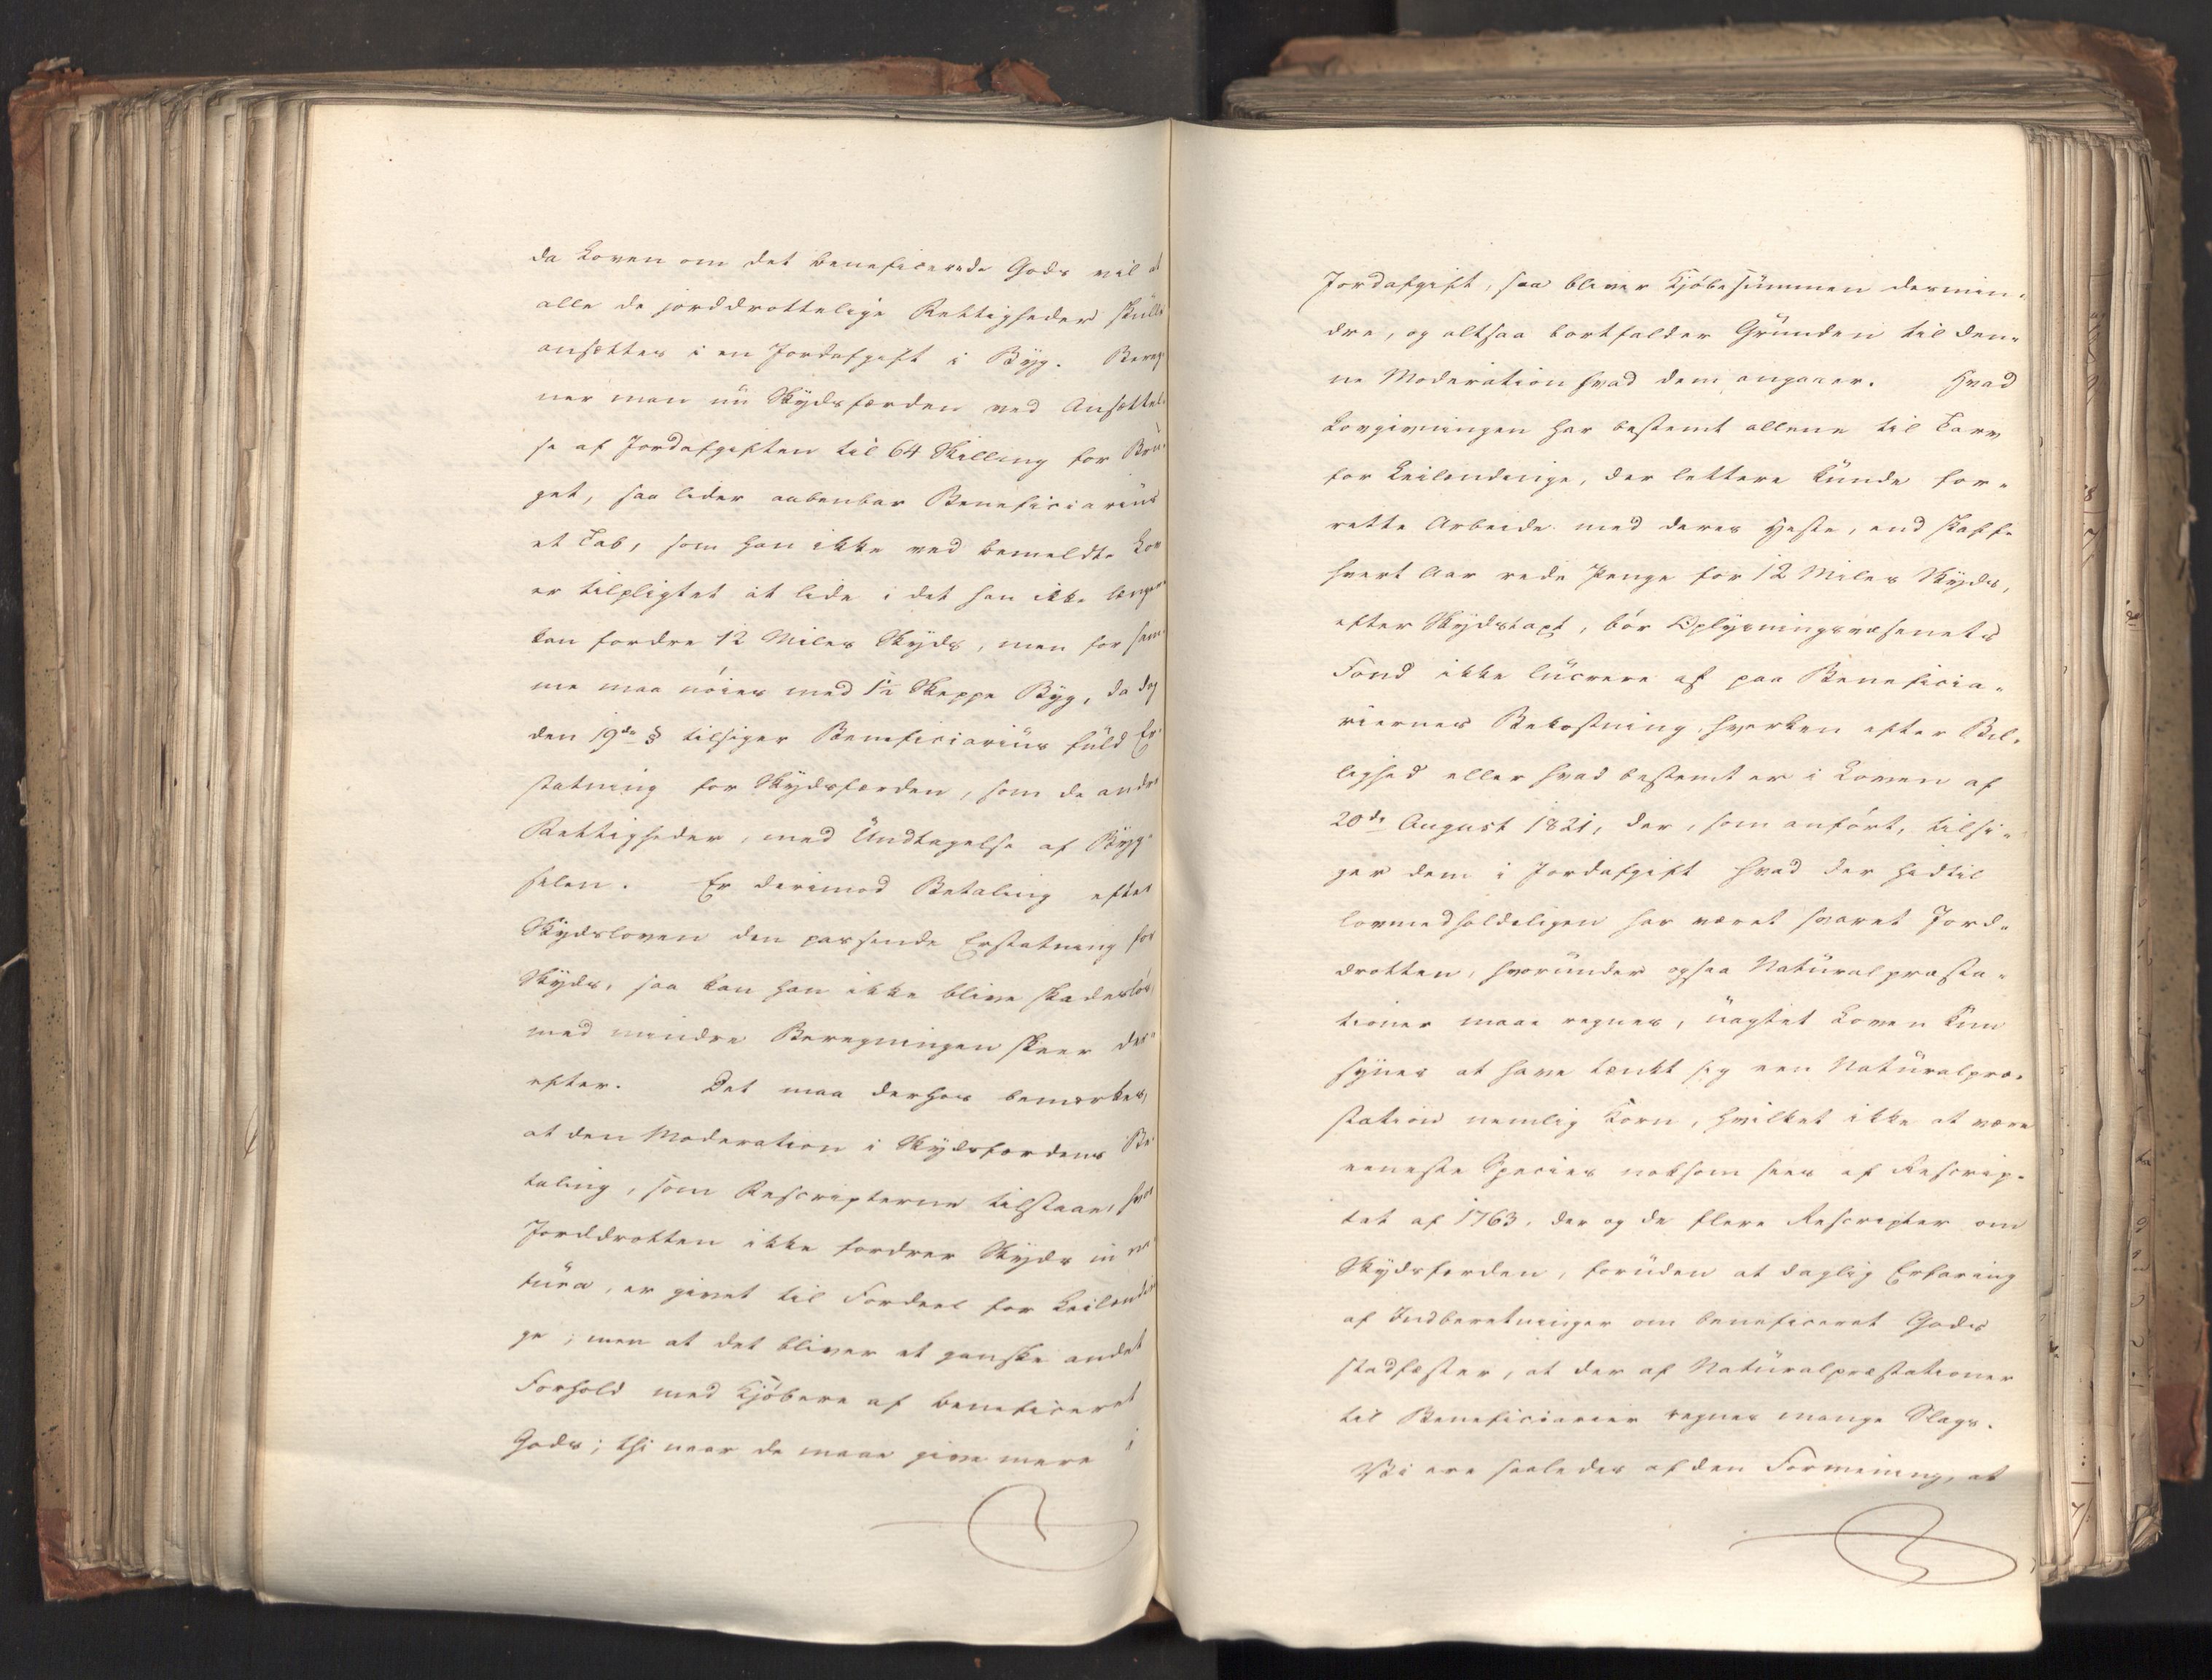 da Loven om det beneficerede Gods vil at
alle de jorddrottelige Rettigheder skulle
ansættes i en Jordafgift i Byg. Bereg-
ner man nu Skydsfærden ved Ansættel-
se af Jordafgiften til 64 Skilling for Bru-
get, saa lider aabenbar Beneficiarius
et Tab, som han ikke ved bemeldte Lov
er tilpligtet at lide i det han ikke længere
kan fordre 12 Miles Skyds, men for sam-
me maa nöies med 1½ Skeppe Byg, da dog
den 19de § tilsiger Beneficiarius fuld Er-
statning for Skydsfærden, som de andre
Rettigheder, med Undtagelse af Byg-
selen. Er derimod Betaling efter
Skydsloven den passende Erstatning for
Skyds, saa kan han ikke blive skadeslös,
med mindre Beregningen skeer der-
efter. Det maa derhos bemærkes,
at den Moderation i Skydsfærdens Be-
taling, som Rescripterne tilstaae, hvor
Jorddrotten ikke fordrer Skyds in na-
tura, er givet til Fordeel for Leilændin-
ge; men at det bliver et ganske andet
Forhold med Kjöbere af beneficeret
Gods; thi naar de maae give mere i
Jordafgift, saa bliver Kjöbesummen desmin-
dre, og altsaa bortfalder Grunden til den-
ne Moderation hvad dem angaaer. Hvad
Lovgivningen har bestemt allene til Tarv
for Leilændinge, der lettere kunde for-
rette Arbeide med deres Heste, end skaffe
hvert Aar rede Penge for 12 Miles Skyds,
efter Skydstaxt, bör Oplysningsvæsenets
Fond ikke lucrere af paa Beneficia-
riernes Bekostning, hverken efter Bil-
lighed eller hvad bestemt er i Loven af
20de August 1821, der, som anfört, tilsi-
ger dem i Jordafgift hvad der hidtil
lovmedholdeligen har været svaret Jord-
drotten, hvorunder ogsaa Naturalpræsta-
tioner maae regnes, uagtet Loven kun
synes at have tænkt sig een Naturalpræ-
station nemlig Korn, hvilket ikke at være
eeneste Species noksom sees af Rescrip-
tet af 1763, der og de flere Rescripter om
Skydsfærden, foruden at daglig Erfaring
af Indberetninger om beneficeret Gods
stadfæster, at der af Naturalpræstationer
til Beneficiarier regnes mange Slags.
Vi ere saaledes af den Formening, at